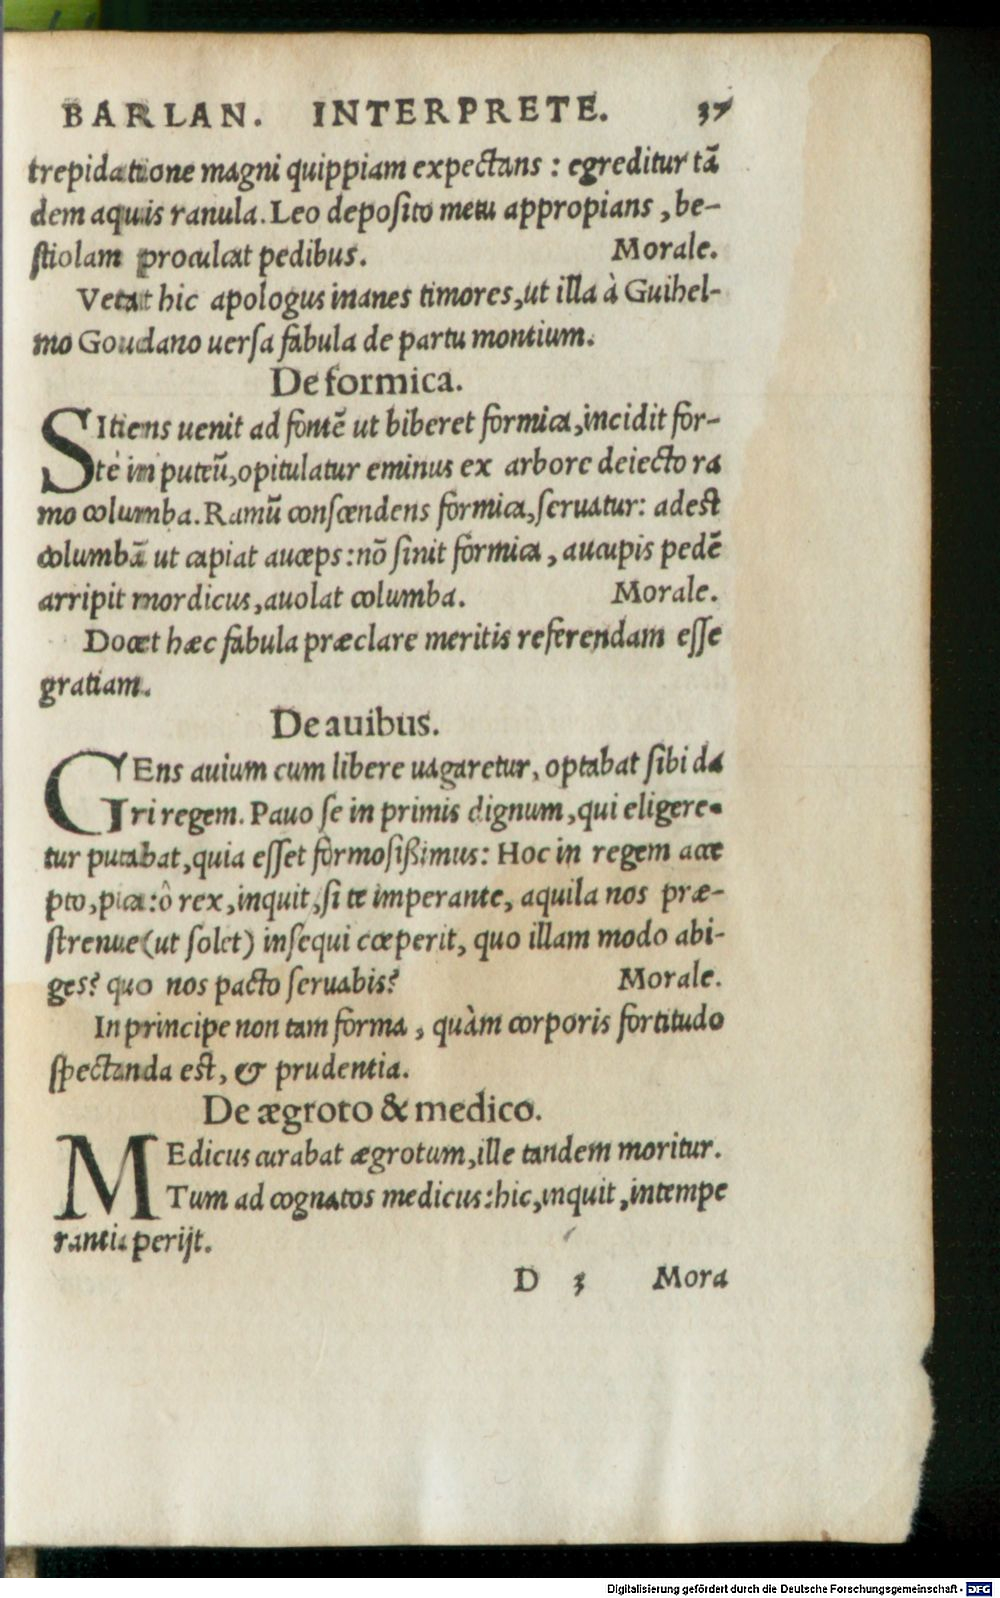 BARLAN. INTERPRETE. 37
trepidatione magni quippiam expectans : egreditur tā
dem aquis ranula. Leo deposito metu appropians, be-
stiolam proculcat pedibus. Morale.
Vetat hic apologus inanes timores, ut illa à Guihel-
mo Goudano uersa fabula de partu montium.
De formica.
SItiens uenit ad fontē ut biberet formica, incidit for-
tè in puteū, opitulatur eminus ex arbore deiecto ra
mo columba. Ramū conscendens formica, seruatur: adest
columbā ut capiat auceps: nō sinit formica, aucupis pedē
arripit mordicus, auolat columba. Morale.
Docet hæc fabula præclare meritis referendam esse
gratiam.
De auibus.
GEns auium cum libere uagaretur, optabat sibi da
ri regem. Pauo se in primis dignum, qui eligere-
tur putabat, quia esset formosißimus: Hoc in regem acce
pto, pica: ô rex, inquit, si te imperante, aquila nos præ-
strenue (ut solet) insequi cœperit, quo illam modo abi-
ges? quo nos pacto seruabis? Morale.
In principe non tam forma, quàm corporis fortitudo
spectanda est, & prudentia.
De ægroto & medico.
MEdicus curabat ægrotum, ille tandem moritur.
Tum ad cognatos medicus: hic, inquit, intempe
rantia perijt.
D 3 Mora
Digitalisierung gefördert durch die Deutsche Forschungsgemeinschaft - DFG